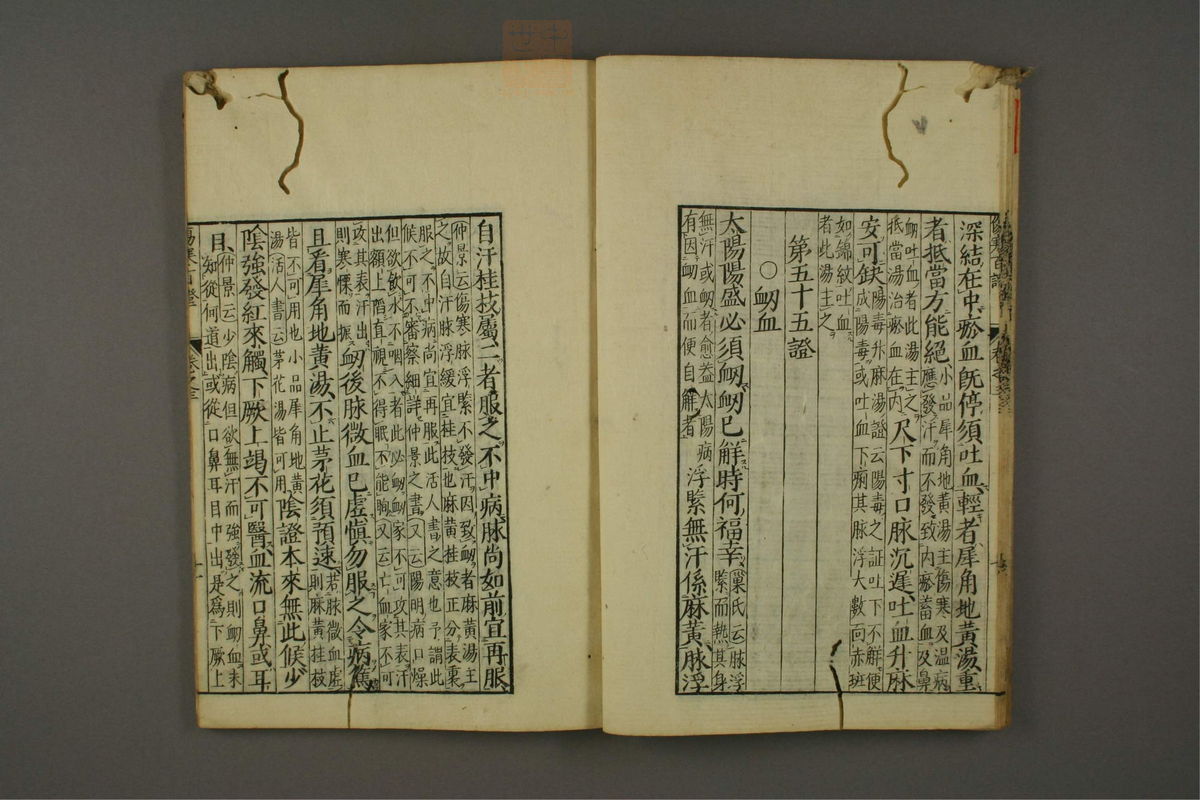 深結在中瘀血既停須吐血輕者犀角地黃湯重
者抵當方能絕小品犀角地黃湯主傷寒及温病
應發汗而不發致内瘀蓄血及鼻
衂吐血者此湯主之
抵當湯治瘀血在内尺下寸口脉沉遲吐血升麻
安可缺陽毒升麻湯證云陽毒之証吐下不解便
成陽毒或吐血下痢其脉浮大數面赤班
如錦紋吐血
者此湯主之
第五十五證
〇衂血
太陽陽盛必須衂衂已解時何福幸巢氏云脉浮
緊而熱其身
無汗或衂者愈益太陽病
有因衂血而便自解者浮緊無汗係麻黃脉浮
自汗桂枝屬二者服之不中病脉尚如前宜再服
仲景云傷寒脉浮緊不發汗因致衂者麻黃湯主
之故自汗脉浮緩宜桂枝也麻黃桂枝正分表裏
服之不中病尚宜再服此活人書之意也予謂此
候不可不審察細詳仲景之書又云陽明病口燥
但欲飲水不咽入者此必衂衂家不可攻其表汗
出額上䧟直視不得眠不能眴又云亡血家不可
攻其表汗出
則寒慄而振衂後脉微血已虛愼勿服之令病篤
且看犀角地黃湯不止茅花須預速若脉微血虛
則麻黃桂枝
皆不可用也小品犀角地黃
湯活人書云茅花湯皆可用陰證本來無此候少
陰強發紅來觸下厥上竭不可醫血流口鼻或耳
目仲景云少陰病但欲無汗而強發之則衂血未
知從何道出或從口鼻耳目中出是爲下厥上